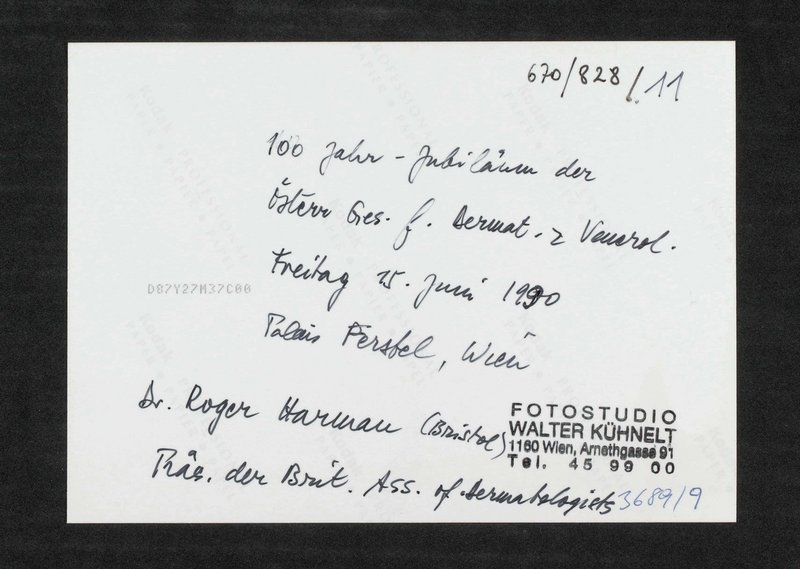 670/828/11
100 Jahr-Jubiläum der
Österr Ges. f. Dermat. u Venerol.
Freitag 15. Juni 1990
D87Y27M37C00
Palais Ferstel, Wien
Dr. Roger Harman (Bristol)
FOTOSTUDIO
WALTER KÜHNELT
1160 Wien, Arnethgasse 91
Tel. 45 99 00
Präs. der Brit. Ass. of Dermatologists
3689/9